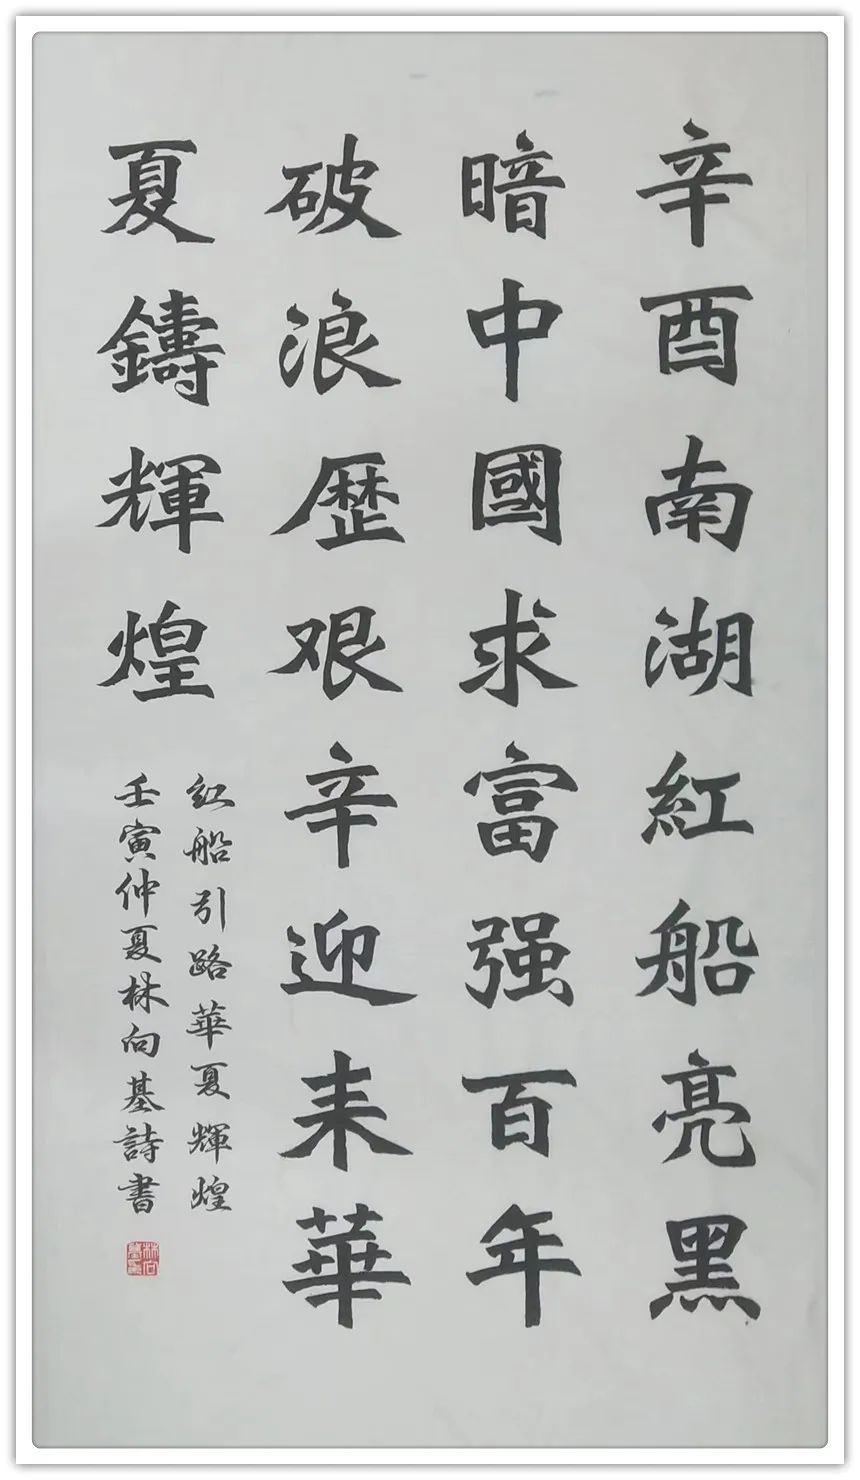 辛酉南湖紅船亮黑
暗中國求富强百年
破浪歷艰辛迎来華
夏鑄輝煌
红船引路華夏輝煌
壬寅仲夏林向基詩書